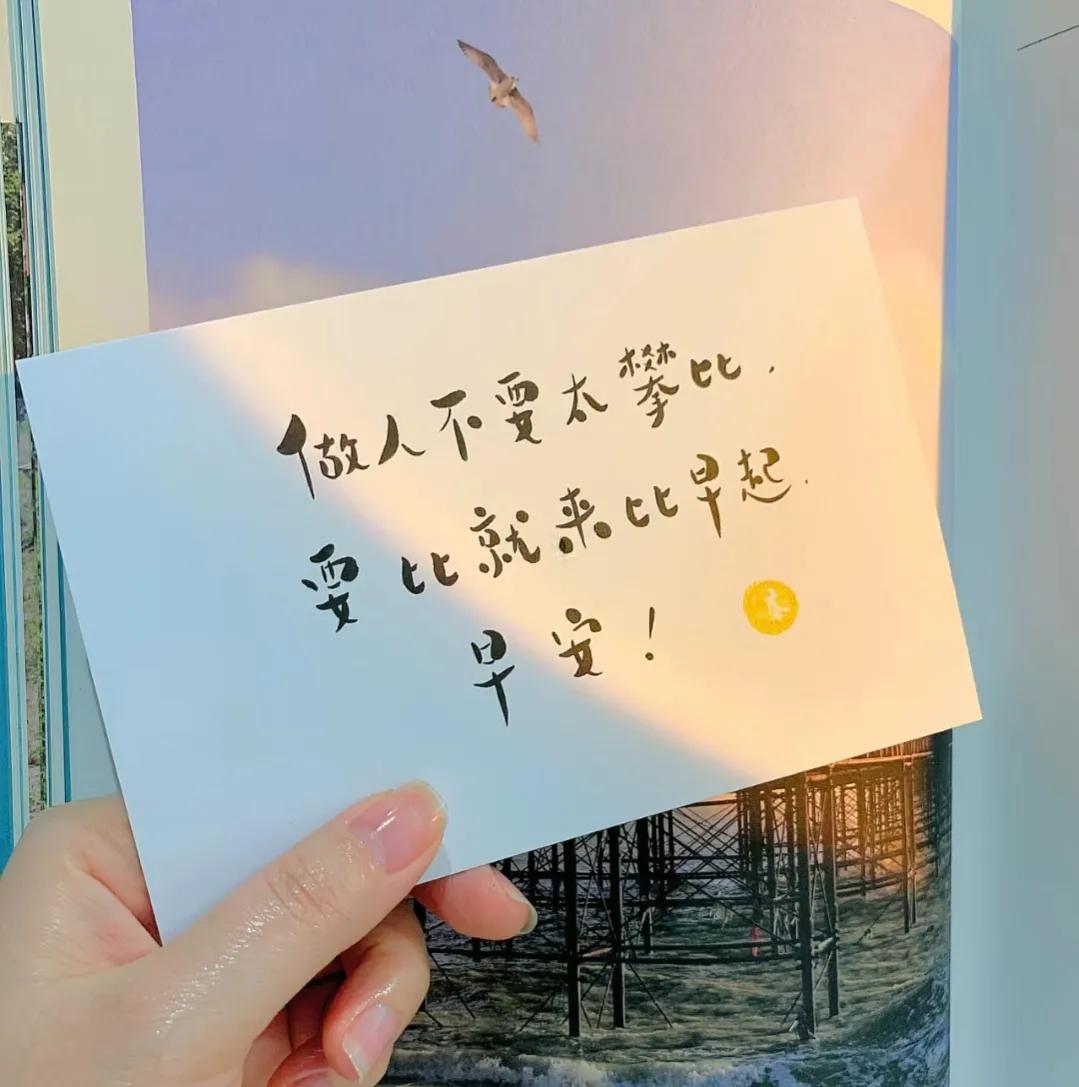 做人不要太攀比，
要比就来比早起.
早安！